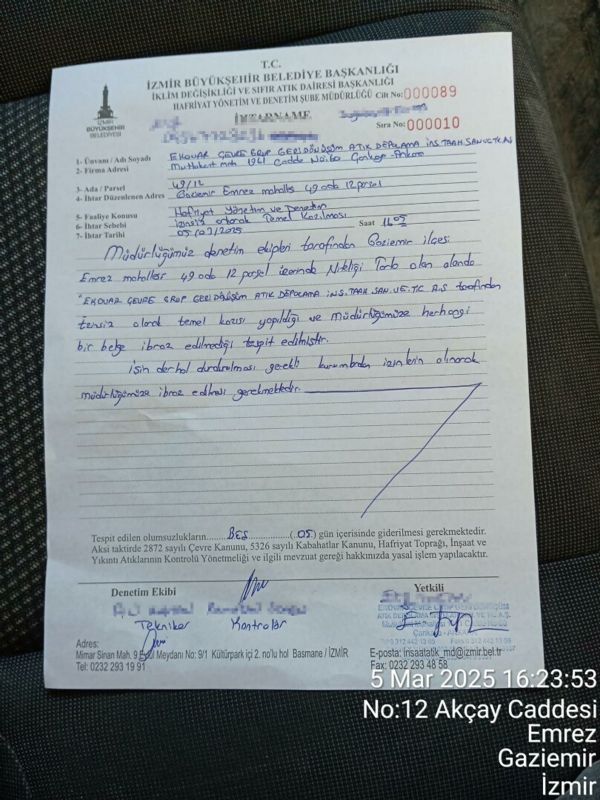 T.C.
İZMİR BÜYÜKŞEHİR BELEDİYE BAŞKANLIĞI
İKLİM DEĞİŞİKLİĞİ VE SIFIR ATIK DAİRESİ BAŞKANLIĞI
HAFRİYAT YÖNETİM VE DENETİM ŞUBE MÜDÜRLÜĞÜ Cilt No: 000089
İZMİR
BÜYÜKŞEHİR
BELEDİYESİ
İHTARNAME
Sıra No: 000010
1- Ünvanı / Adı Soyadı EKOVAR ÇEVRE GRUP GERİ DÖNÜŞÜM ATIK DEPOLAMA İNŞ. TAAH. SAN. VE TİC. A.Ş
2- Firma Adresi Mutlukent mah. 1961 Cadde No:60 Çankaya-Ankara
3- Ada / Parsel 49/12
4- İhtar Düzenlenen Adres Gaziemir Emrez mahallesi 49 ada 12 parsel
5- Faaliye Konusu Hafriyat Yönetim ve Denetim
6- İhtar Sebebi İzinsiz olarak Temel Kazılması
7- İhtar Tarihi 05/03/2025 Saat
Müdürlüğümüz denetim ekipleri tarafından Gaziemir ilçesi
Emrez mahallesi 49 ada 12 parsel üzerinde Niteliği Tarla olan alanda
"EKOVAR ÇEVRE GRUP GERİ DÖNÜŞÜM ATIK DEPOLAMA İNŞ. TAAH. SAN. VE. TİC A.Ş tarafından
İzinsiz olarak temel kazısı yapıldığı ve Müdürlüğümüze herhangi
bir belge ibraz edilmediği tespit edilmiştir.
İşin derhal durdurulması gerekli kurumlardan izinlerin alınarak
müdürlüğümüze ibraz edilmesi gerekmektedir.
Tespit edilen olumsuzlukların.....BEŞ......(..05) gün içerisinde giderilmesi gerekmektedir.
Aksi taktirde 2872 sayılı Çevre Kanunu, 5326 sayılı Kabahatlar Kanunu, Hafriyat Toprağı, İnşaat ve
Yıkıntı Atıklarının Kontrolü Yönetmeliği ve ilgili mevzuat gereği hakkınızda yasal işlem yapılacaktır.
Denetim Ekibi Yetkili
Tekniker Kontrolör
Adres:
Mimar Sinan Mah. 9 Eylül Meydanı No: 9/1 Kültürpark içi 2. no'lu hol Basmane / İZMİR
Tel: 0232 293 19 91
E-posta: insaatatik_md@izmir.bel.tr
Fax: 0232 293 48 58
5 Mar 2025 16:23:53
No:12 Akçay Caddesi
Emrez
Gaziemir
İzmir